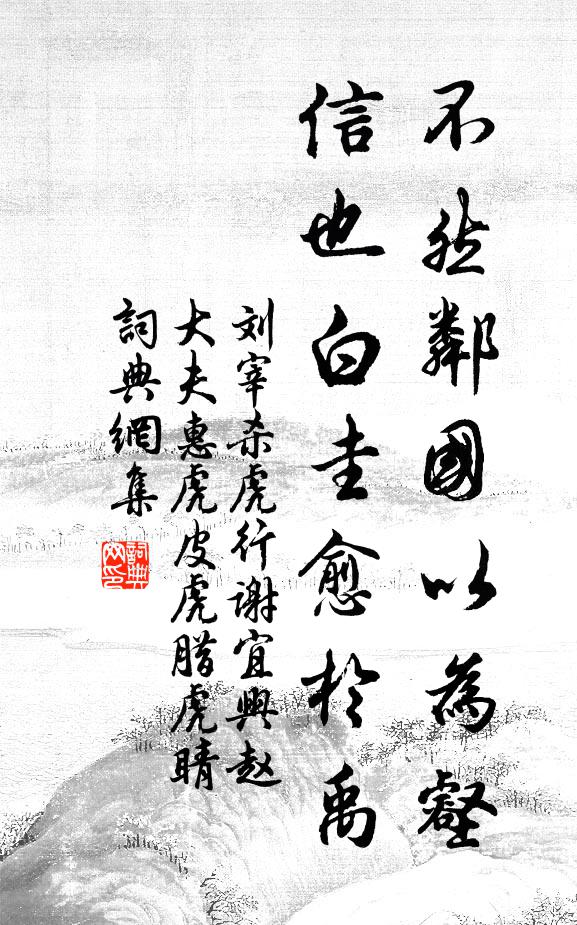 不然鄰國以為壑
信也白圭愈於禹
刘宰杀虎行谢宜興赵
大夫惠虎皮虎腊虎睛
詞典網集
詞典
网印